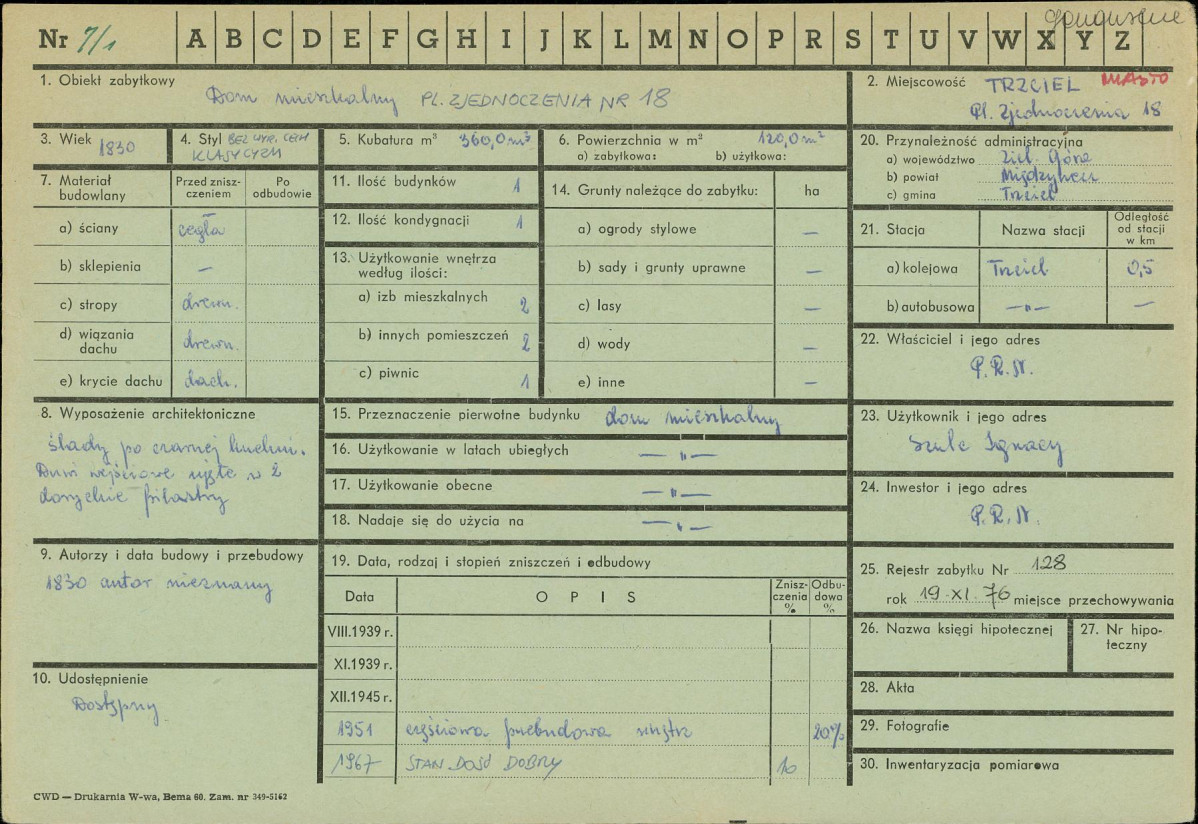 Nr 7/1 A B C D E F G H I J K L M N O P R S T U V W X Y Z
1. Obiekt zabytkowy
Dom mieszkalny PL. ZJEDNOCZENIA NR 18
2. Miejscowość TRZCIEL MIASTO
Pl. Zjednoczenia 18
3. Wiek 1830
4. Styl BEZ WYR. CECH
KLASYCYZM
5. Kubatura m³ 360,0 m³
6. Powierzchnia w m² 120,0 m²
a) zabytkowa: b) użytkowa:
20. Przynależność administracyjna
a) województwo Ziel. Góra
b) powiat Międzyrzecz
c) gmina Trzciel
7. Materiał budowlany
Przed znisz-
czeniem
Po
odbudowie
a) ściany cegła
b) sklepienia —
c) stropy drewn.
d) wiązania
dachu drewn.
e) krycie dachu dach.
11. Ilość budynków 1
12. Ilość kondygnacji 1
13. Użytkowanie wnętrza
według ilości:
a) izb mieszkalnych 2
b) innych pomieszczeń 2
c) piwnic 1
14. Grunty należące do zabytku: ha
a) ogrody stylowe —
b) sady i grunty uprawne —
c) lasy —
d) wody —
e) inne —
21. Stacja Nazwa stacji
Odległość
od stacji
w km
a) kolejowa Trzciel 0,5
b) autobusowa —"— —
22. Właściciel i jego adres
P.R.N.
8. Wyposażenie architektoniczne
ślady po czarnej kuchni.
Drzwi wejściowe ujęte w 2
doryckie pilastry
15. Przeznaczenie pierwotne budynku dom mieszkalny
16. Użytkowanie w latach ubiegłych —"—
17. Użytkowanie obecne —"—
18. Nadaje się do użycia na —"—
23. Użytkownik i jego adres
Szulc Ignacy
24. Inwestor i jego adres
P.R.N.
9. Autorzy i data budowy i przebudowy
1830 autor nieznany
19. Data, rodzaj i stopień zniszczeń i odbudowy
Data OPIS
Znisz-
czenia
%
Odbu-
dowa
%
VIII.1939 r.
XI.1939 r.
XII.1945 r.
1951 częściowa przebudowa wnętrz 20%
1967 STAN DOŚĆ DOBRY 10
25. Rejestr zabytku Nr 128
rok 19.XI.76 miejsce przechowywania
26. Nazwa księgi hipotecznej
27. Nr hipo-
teczny
10. Udostępnienie
Dostępny
28. Akta
29. Fotografie
30. Inwentaryzacja pomiarowa
CWD — Drukarnia W-wa, Bema 60. Zam. nr 349-5162